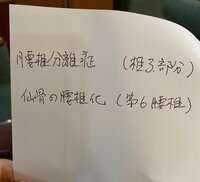 腰椎分離症 （椎３部分）
仙骨の腰椎化（第６腰椎）